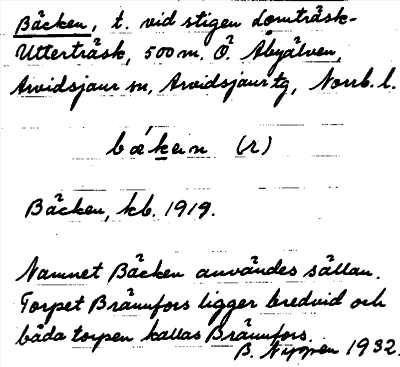 Bäcken, t. vid stigen Lomträsk-
Utterträsk, 500 m. Ö. Åbyälven,
Arvidsjaur sn, Arvidsjaur tg, Norrb. l.
bǽkern (r)
Bäcken, kb. 1919.
Namnet Bäcken användes sällan.
Torpet Brännfors ligger bredvid och
båda torpen kallas Brännfors.
B. Nippen 1932.